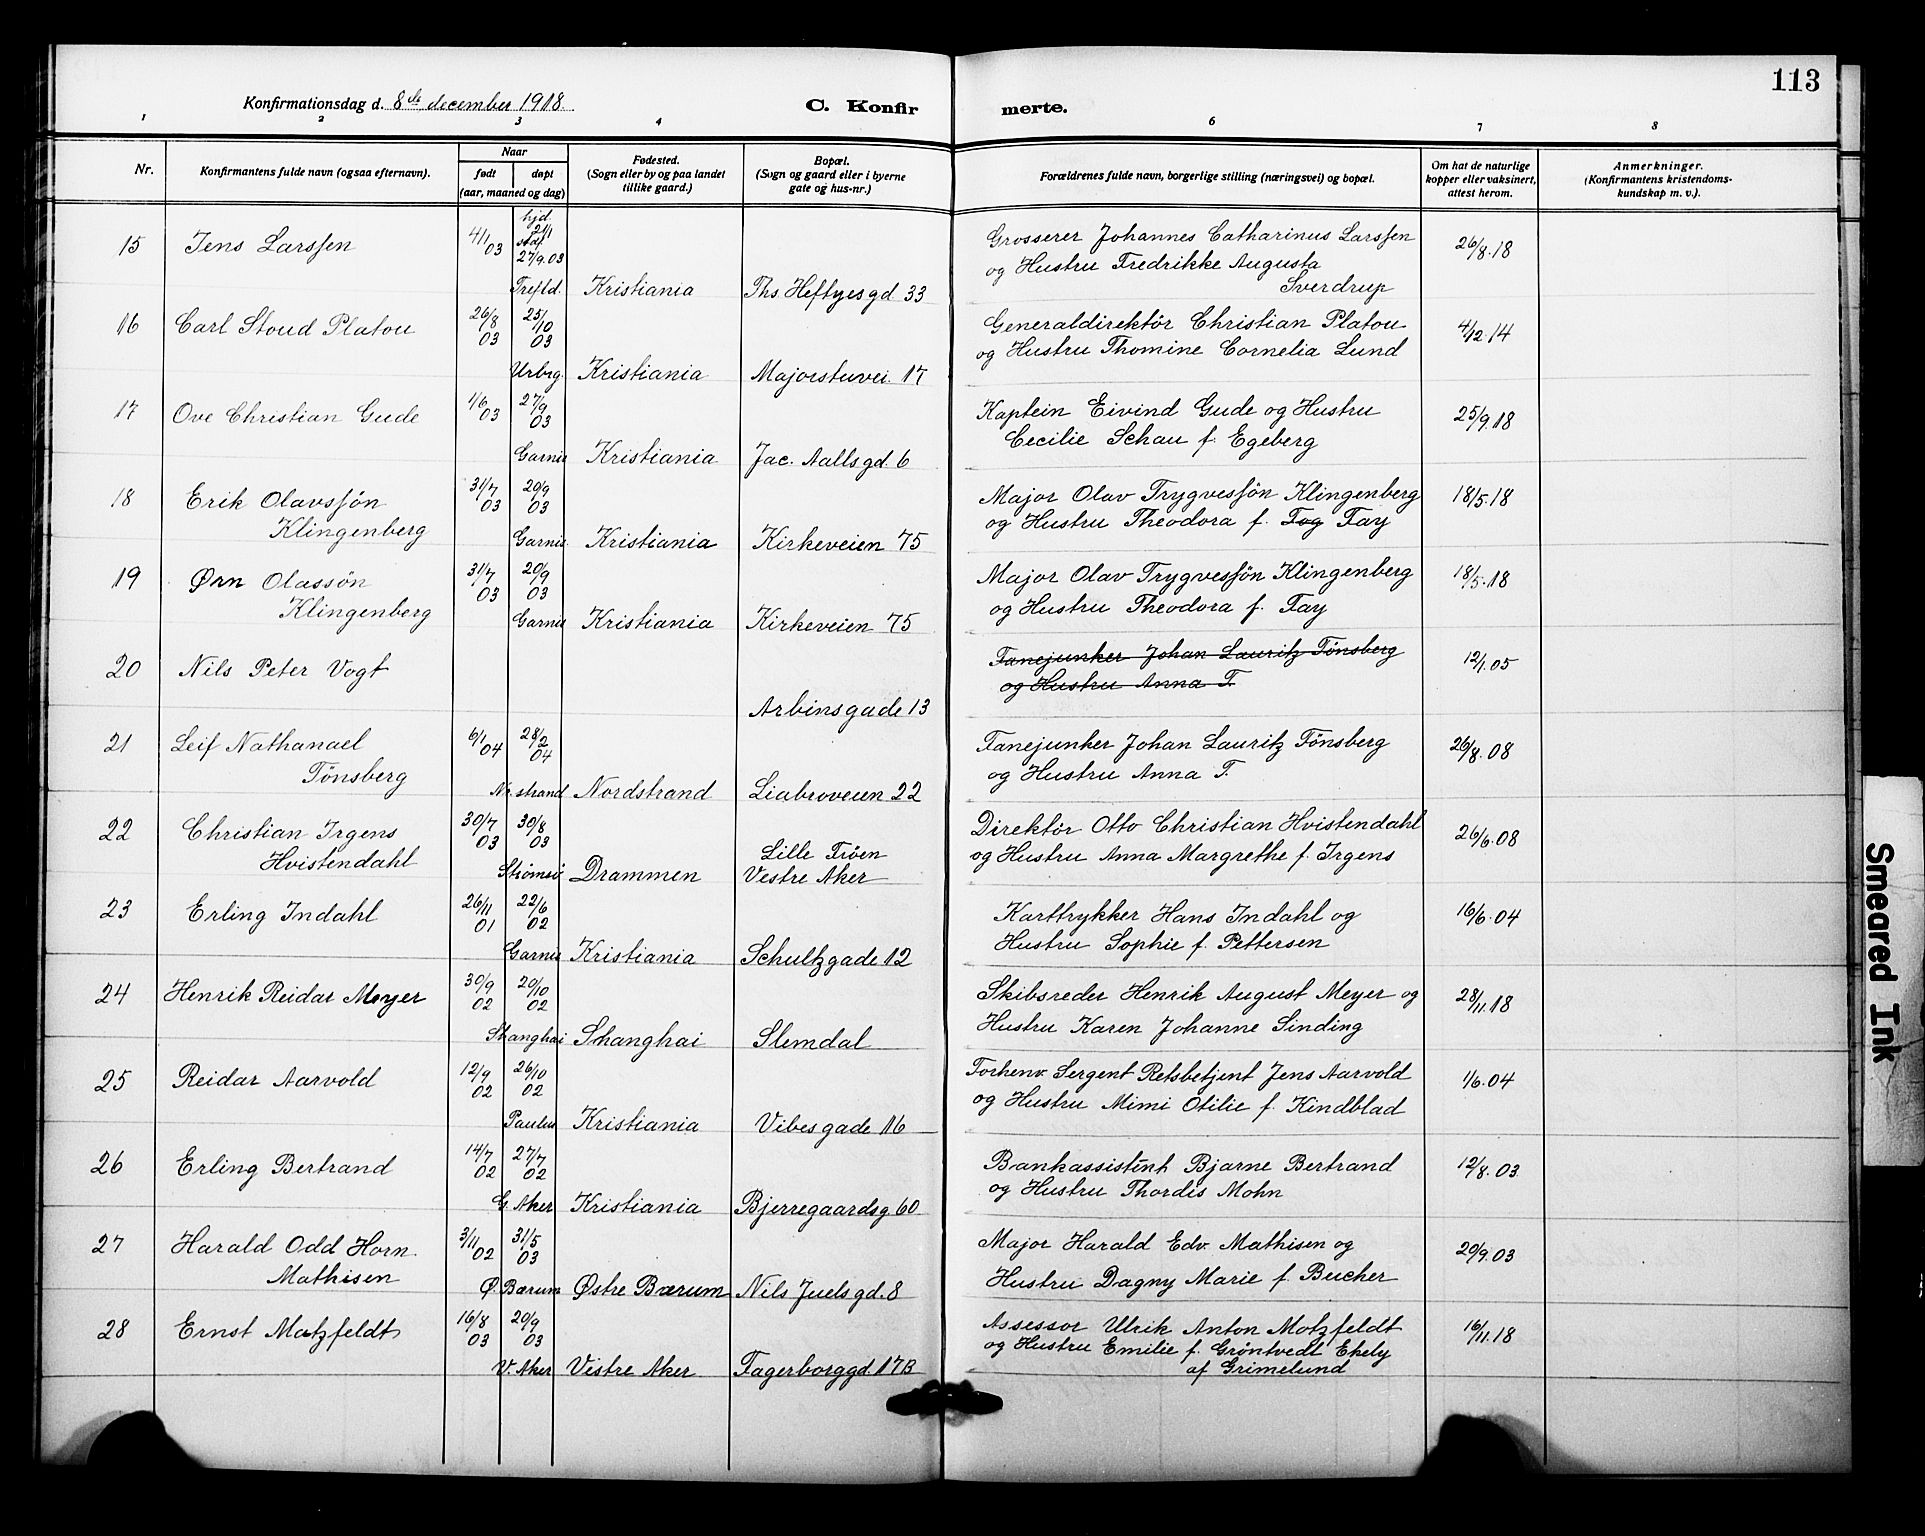 113
Konfirmationsdag d. 8de december 1918.
C. Konfir merte.
1 2 3 4 6 7 8
Nr.
Konfirmantens fulde navn (ogsaa efternavn).
Naar
født døpt
(aar, maaned og dag)
Fødested.
(Sogn eller by og paa landet
tillike gaard.)
Bopæl.
(Sogn og gaard eller i byerne
gate og hus-nr.)
Forældrenes fulde navn, borgerlige stilling (næringsvei) og bopæl.
Om hat de naturlige
kopper eller vaksinert,
attest herom.
Anmerkninger.
(Konfirmantens kristendoms-
kundskap m. v.).
15 Jens Larssen 4/1 03 hjd. 2/1 stdf. 27/9.03 Grosserer Johannes Catharinus Larssen 26/8.18
og Hustru Fredrikke Augusta
Trefld. Kristiania Ths. Heftyesgd 33 Sverdrup
16 Carl Stoud Platou 26/8 03 25/10 03 Generaldirektör Christian Platou 4/12.14
og Hustru Thomine Cornelia Lund
Urbrg. Kristiania Majorstuvei. 17
17 Ove Christian Gude 1/6 03 27/9 03 Kaptein Eivind Gude og Hustru 25/9.18
Cecilie Schau f. Egeberg
Garnis Kristiania Jac. Aallsgd. 6
18 Erik Olavssön 31/7 03 20/9 03 Major Olav Trygvessön Klingenberg 18/5.18
Klingenberg og Hustru Theodora f. Fog Fay
Garnis. Kristiania Kirkeveien 75
19 Ørn Olassön 31/7 03 20/9 03 Major Olav Trygvessön Klingenberg 18/5.18
Klingenberg og Hustru Theodora f. Fay
Garnis Kristiania Kirkeveien 75
20 Nils Peter Vogt Fanejunker Johan Lauritz Tönsberg 12/1.05
og Hustru Anna T.
Arbinsgade 13
21 Leif Nathanael 6/1 04 28/2 04 Fanejunker Johan Lauritz Tönsberg 26/8.08
Tönsberg og Hustru Anna T.
Nr. strand Nordstrand Liabroveien 22
22 Christian Irgens 30/7 03 30/8 03 Direktör Otto Christian Hvistendahl 26/6.08
Hvistendahl Lille Fröen og Hustru Anna Margrethe f. Irgens
Strömsö Drammen Vestre Aker
23 Erling Indahl 26/11 01 22/6 02 Karttrykker Hans Indahl og 16/6.04
Hustru Sophie f. Pettersen
Garnis Kristiania Schultzgade 12
24 Henrik Reidar Meyer 30/9 02 20/10 02 Skibsreder Henrik August Meyer og 28/11.18
Hustru Karen Johanne Sinding
Shanghai Shanghai Slemdal
25 Reidar Aarvold 12/9 02 26/10 02 Forhenv. Sergent Retsbetjent Jens Aarvold 1/6.04
og Hustru Mimi Otilie f. Kindblad
Paulus Kristiania Vibesgade 16
26 Erling Bertrand 14/7 02 27/7 02 Bankassistent Bjarne Bertrand 12/8.03
og Hustru Thordis Mohn
G. Aker Kristiania Bjerregaardsg. 60
27 Harald Odd Horn 3/11 02 31/5 03 Major Harald Edv. Mathisen og 20/9.03
Mathisen Hustru Dagny Marie f. Bucher
Ø. Bærum Østre Bærum Nils Juelsgd. 8
28 Ernst Motzfeldt 16/8 03 20/9 03 Assessor Ulrik Anton Motzfeldt 16/11.18
og Hustru Emilie f. Gröntvedt Ekely
V. Aker Vestre Aker Fagerborggd. 17B af Grimelund
Smeared Ink